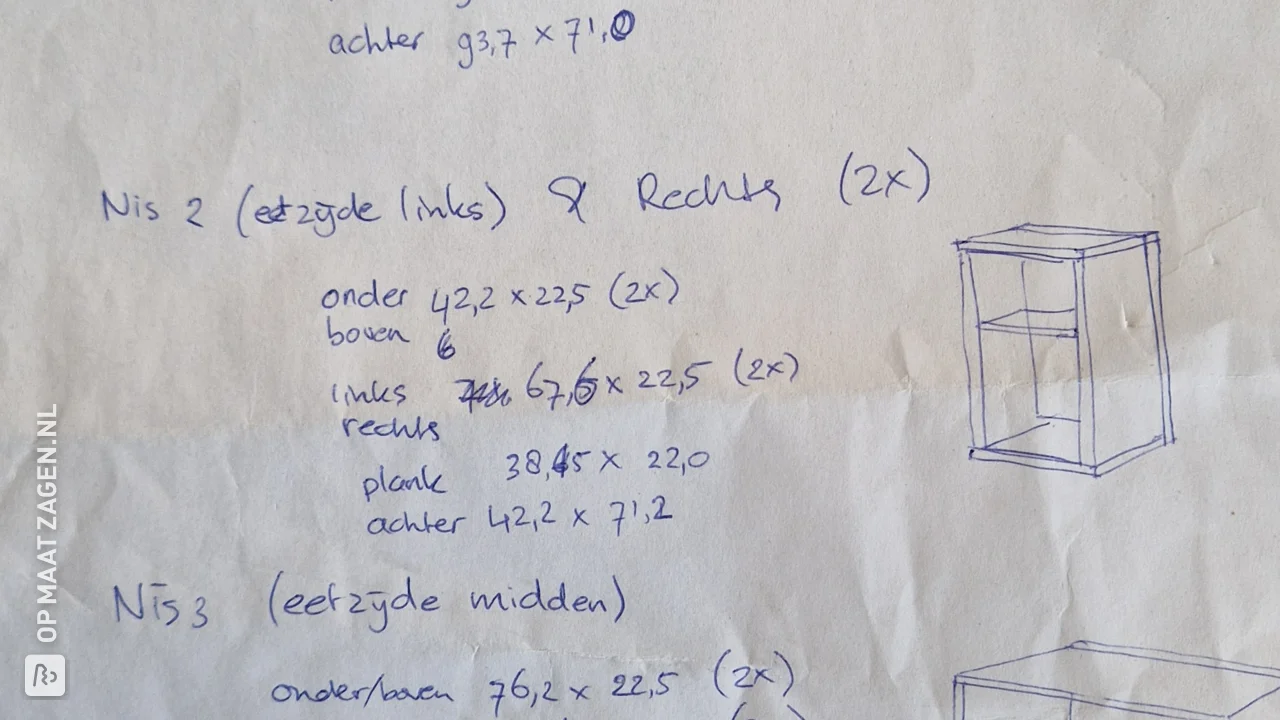 achter 93,7 x 71,0
Nis 2 (eetzijde links) & Rechts (2x)
onder 42,2 x 22,5 (2x)
boven 6
links 67,6 x 22,5 (2x)
rechts
plank 38,45 x 22,0
achter 42,2 x 71,2
Nis 3 (eetzijde midden)
onder/boven 76,2 x 22,5 (2x)
OPMAATZAGEN.NL